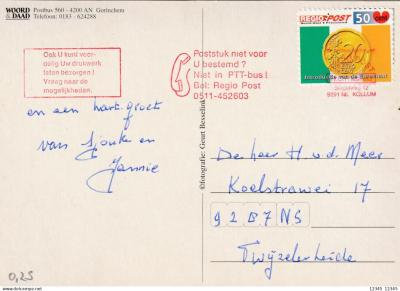 WOORD & DAAD
Postbus 560 - 4200 AN Gorinchem
Telefoon: 0183 - 624288
Ook U kunt voor-
delig Uw drukwerk
laten bezorgen!
Vraag naar de
mogelijkheden.
Poststuk niet voor
U bestemd?
Niet in PTT-bus!
Bel: Regio Post
0511-452603
REGIO POST
50
cent
9291 NL KOLLUM
©fotografie: Geurt Besselink
en een hart. groet
van Sjouke en
Jannie
De heer H. v.d. Meer
Koelstrawei 17
9287NS
Twijzelerheide
0,25
12345 12345